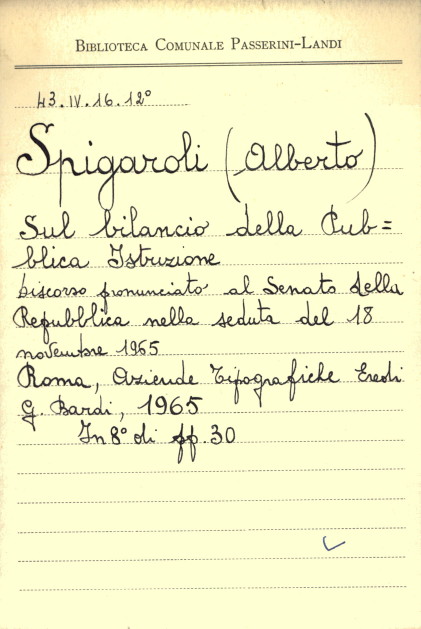 BIBLIOTECA COMUNALE PASSERINI-LANDI
43.IV.16.12°
Spigaroli (Alberto)
Sul bilancio della Pub=
blica Istruzione
Discorso pronunciato al Senato della
Repubblica nella seduta del 18
novembre 1965
Roma, Aziende Tipografiche Eredi
G. Bardi, 1965
In 8° di pp. 30